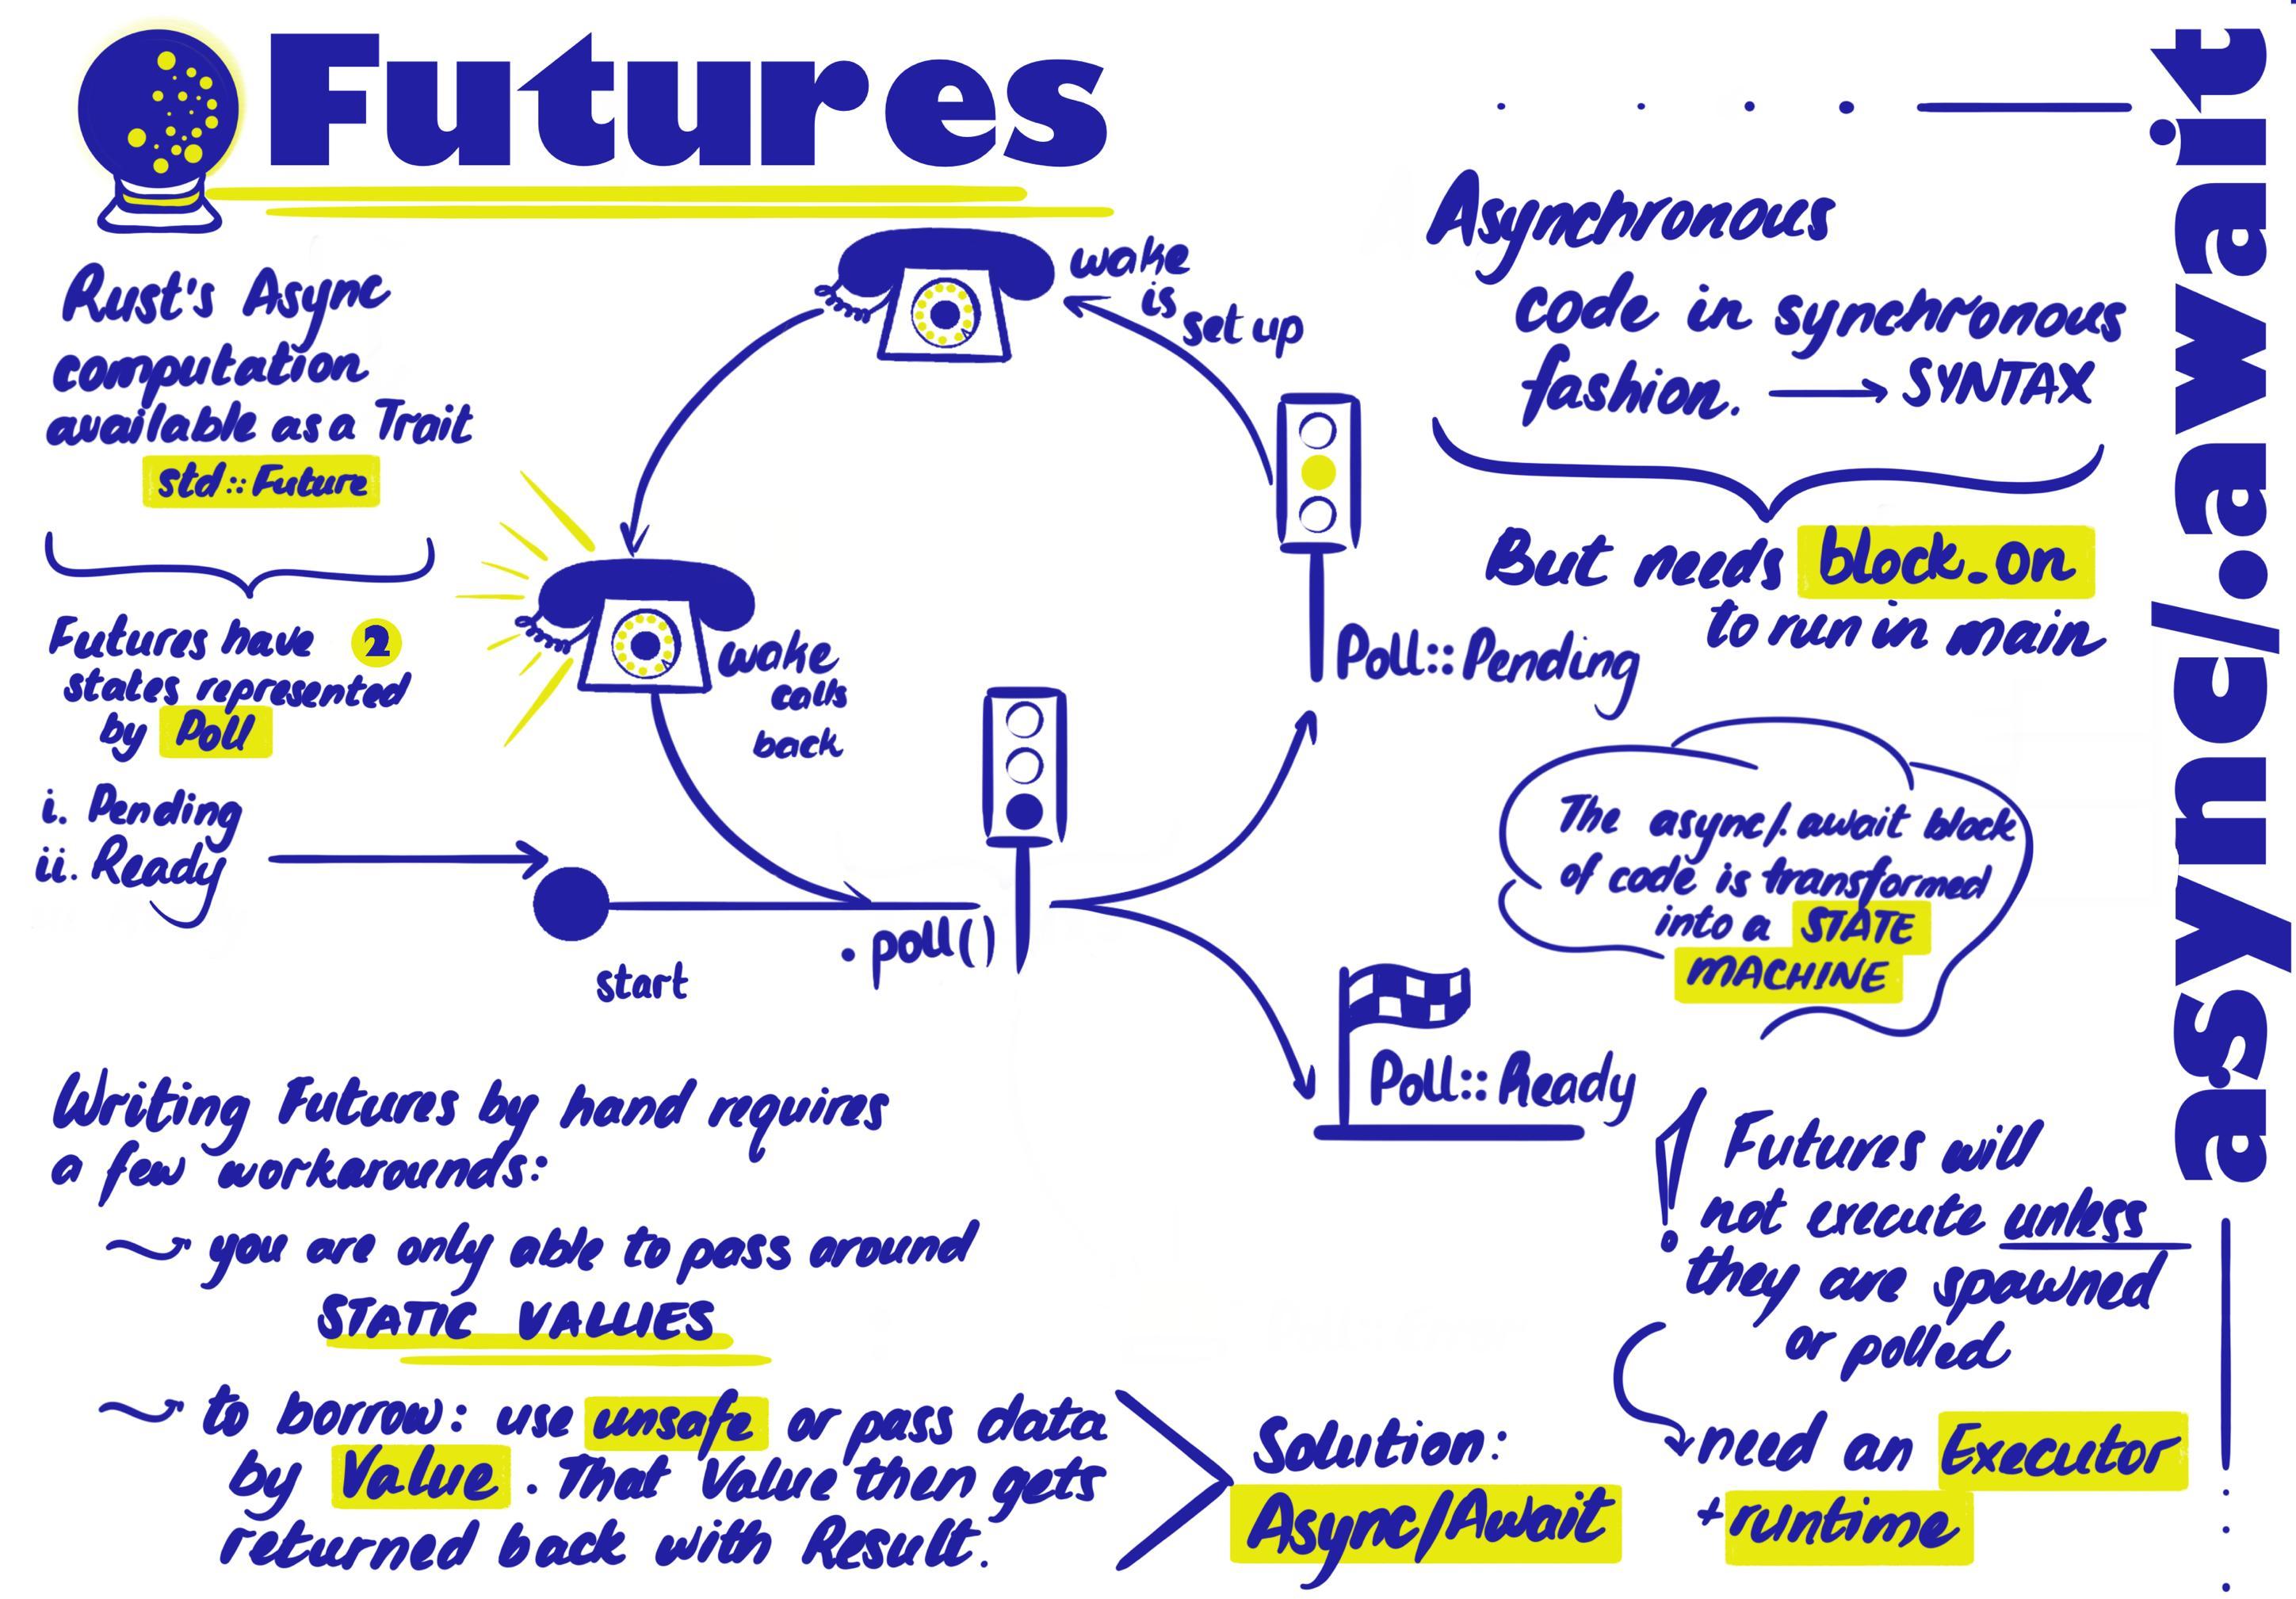 Futures
Rust's Async
computation
available as a Trait
std::Future
Futures have 2
states represented
by Poll
i. Pending
ii. Ready
start
.poll()
Poll::Pending
wake
is
set up
wake
calls
back
Poll::Ready
Writing Futures by hand requires
a few workarounds:
you are only able to pass around
STATIC VALUES
to borrow: use unsafe or pass data
by Value. That Value then gets
returned back with Result.
Solution:
Async/Await
async/.await
Asynchronous
code in synchronous
fashion. → SYNTAX
But needs block_on
to run in main
The async/.await block
of code is transformed
into a STATE
MACHINE
! Futures will
not execute unless
they are spawned
or polled
need an Executor
+ runtime